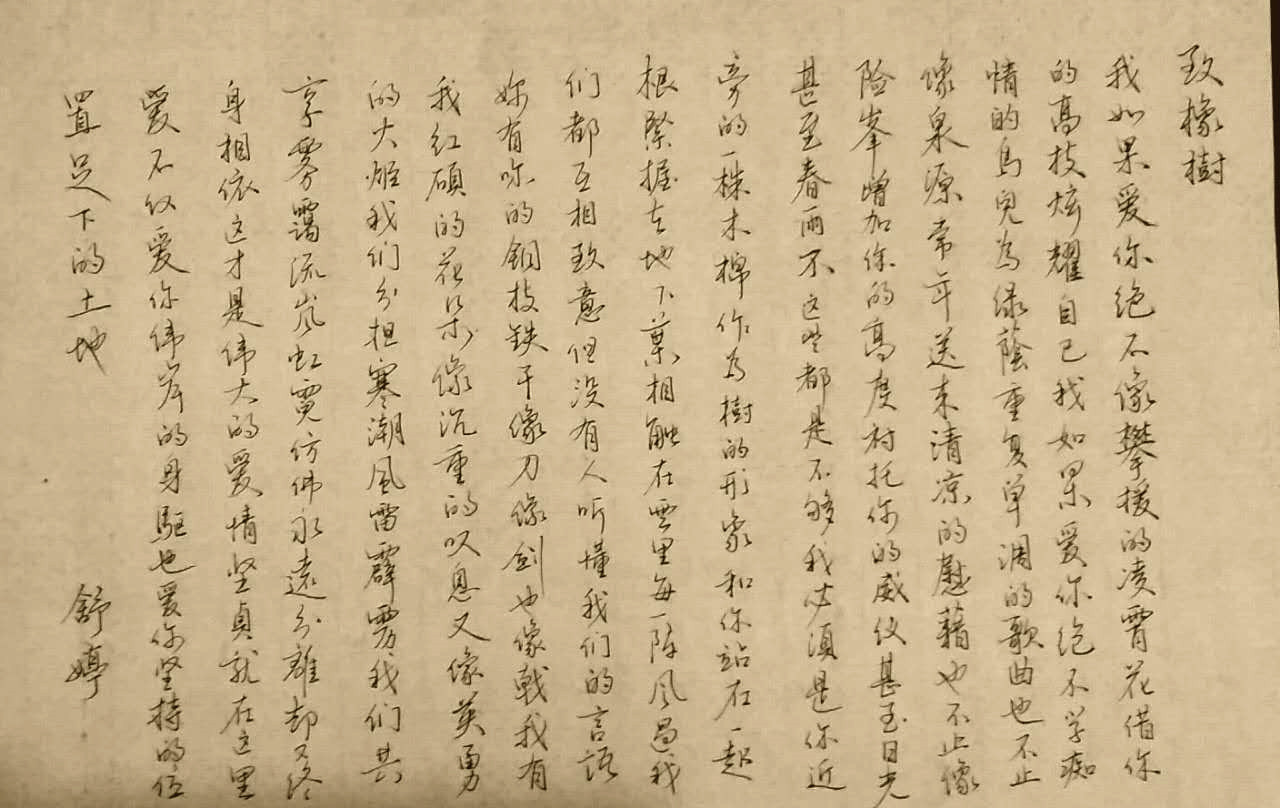 致橡樹
我如果爱你绝不像攀援的凌霄花借你
的高枝炫耀自己我如果爱你绝不学痴
情的鸟兒為绿蔭重复单调的歌曲也不止
像泉源常年送来清凉的慰藉也不止像
险峯增加你的高度衬托你的威仪甚至日光
甚至春雨不这些都是不够我必须是你近
旁的一株木棉作為樹的形象和你站在一起
根緊握在地下葉相触在雲里每一阵风過我
们都互相致意但没有人听懂我们的言語
你有你的銅枝鉄干像刀像剑也像戟我有
我红碩的花朵像沉重的叹息又像英勇
的火炬我们分担寒潮風雷霹雳我们共
享雾靄流岚虹霓仿佛永遠分離却又终
身相依这才是偉大的爱情坚貞就在这里
爱不仅爱你偉岸的身躯也爱你坚持的位
置足下的土地
舒婷